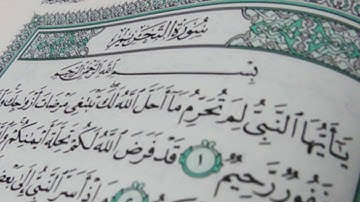 سُورَةُ التَّحْرِيمِ
بِسْمِ اللَّهِ الرَّحْمَٰنِ الرَّحِيمِ
يَا أَيُّهَا النَّبِيُّ لِمَ تُحَرِّمُ مَا أَحَلَّ اللَّهُ لَكَ تَبْتَغِي مَرْضَاتَ أَزْوَاجِكَ وَاللَّهُ
غَفُورٌ رَّحِيمٌ ١ قَدْ فَرَضَ اللَّهُ لَكُمْ تَحِلَّةَ أَيْمَانِكُمْ
٢ وَإِذْ أَسَرَّ النَّبِيُّ إِلَىٰ بَعْضِ